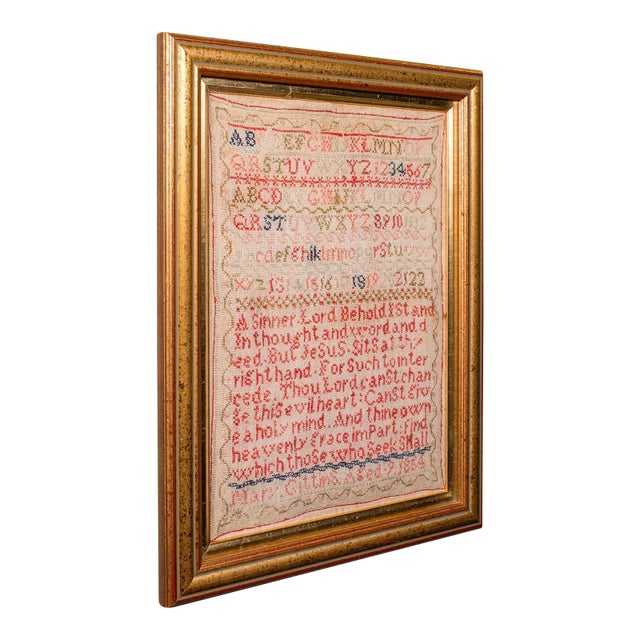 AB EFGHI KLMNOP
QRSTUV YZ1234567
ABCD GHIJKL OP
QRSTUVWXYZ8910
cdefghiklmnopqrstu
XYZ 131415161718 19 2122
A Sinner Lord Behold I Stand
In thought and word and d
eed. But JeSuS. SitS at thy
right hand. For Such to inter
cede. Thou Lord canSt chan
ge thiS evil heart: CanSt giv
e a holy mind. And thine own
heavenly grace imPart. find
which thoSe who Seek Shall
Mary Gittms. Aged. 9 1864